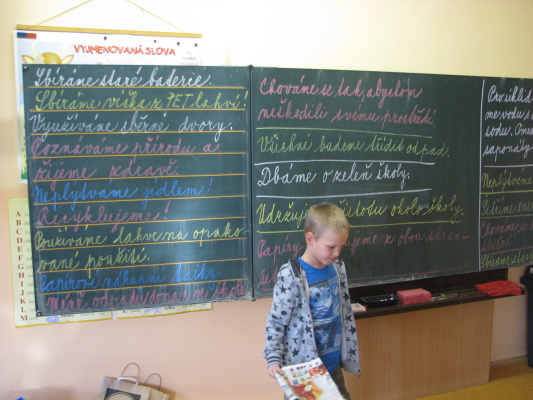 VYJMENOVANÁ SLOVA
Sbíráme staré baterie.
Sbíráme víčka z PET lahví!
Využíváme sběrné dvory.
Poznáváme přírodu a
žijeme zdravě.
Neplýtváme jídlem!
Recyklujeme!
Používáme lahve na opako-
vané použití.
Papírové nákupní tašky.
Méně odpadu
Chováme se tak, abychom
neškodili svému prostředí
Všichni budeme třídit odpad.
Dbáme o zeleň školy.
Udržujeme čistotu okolo školy.
Papíry z obou stran
Pro úklid
me vodu s
sodu. Ome
saponáty
Neplýtváme
Šetříme ene
Chováme se
Sbíráme star
A
B
C
D
E
F
G
H
I
J
K
L
M